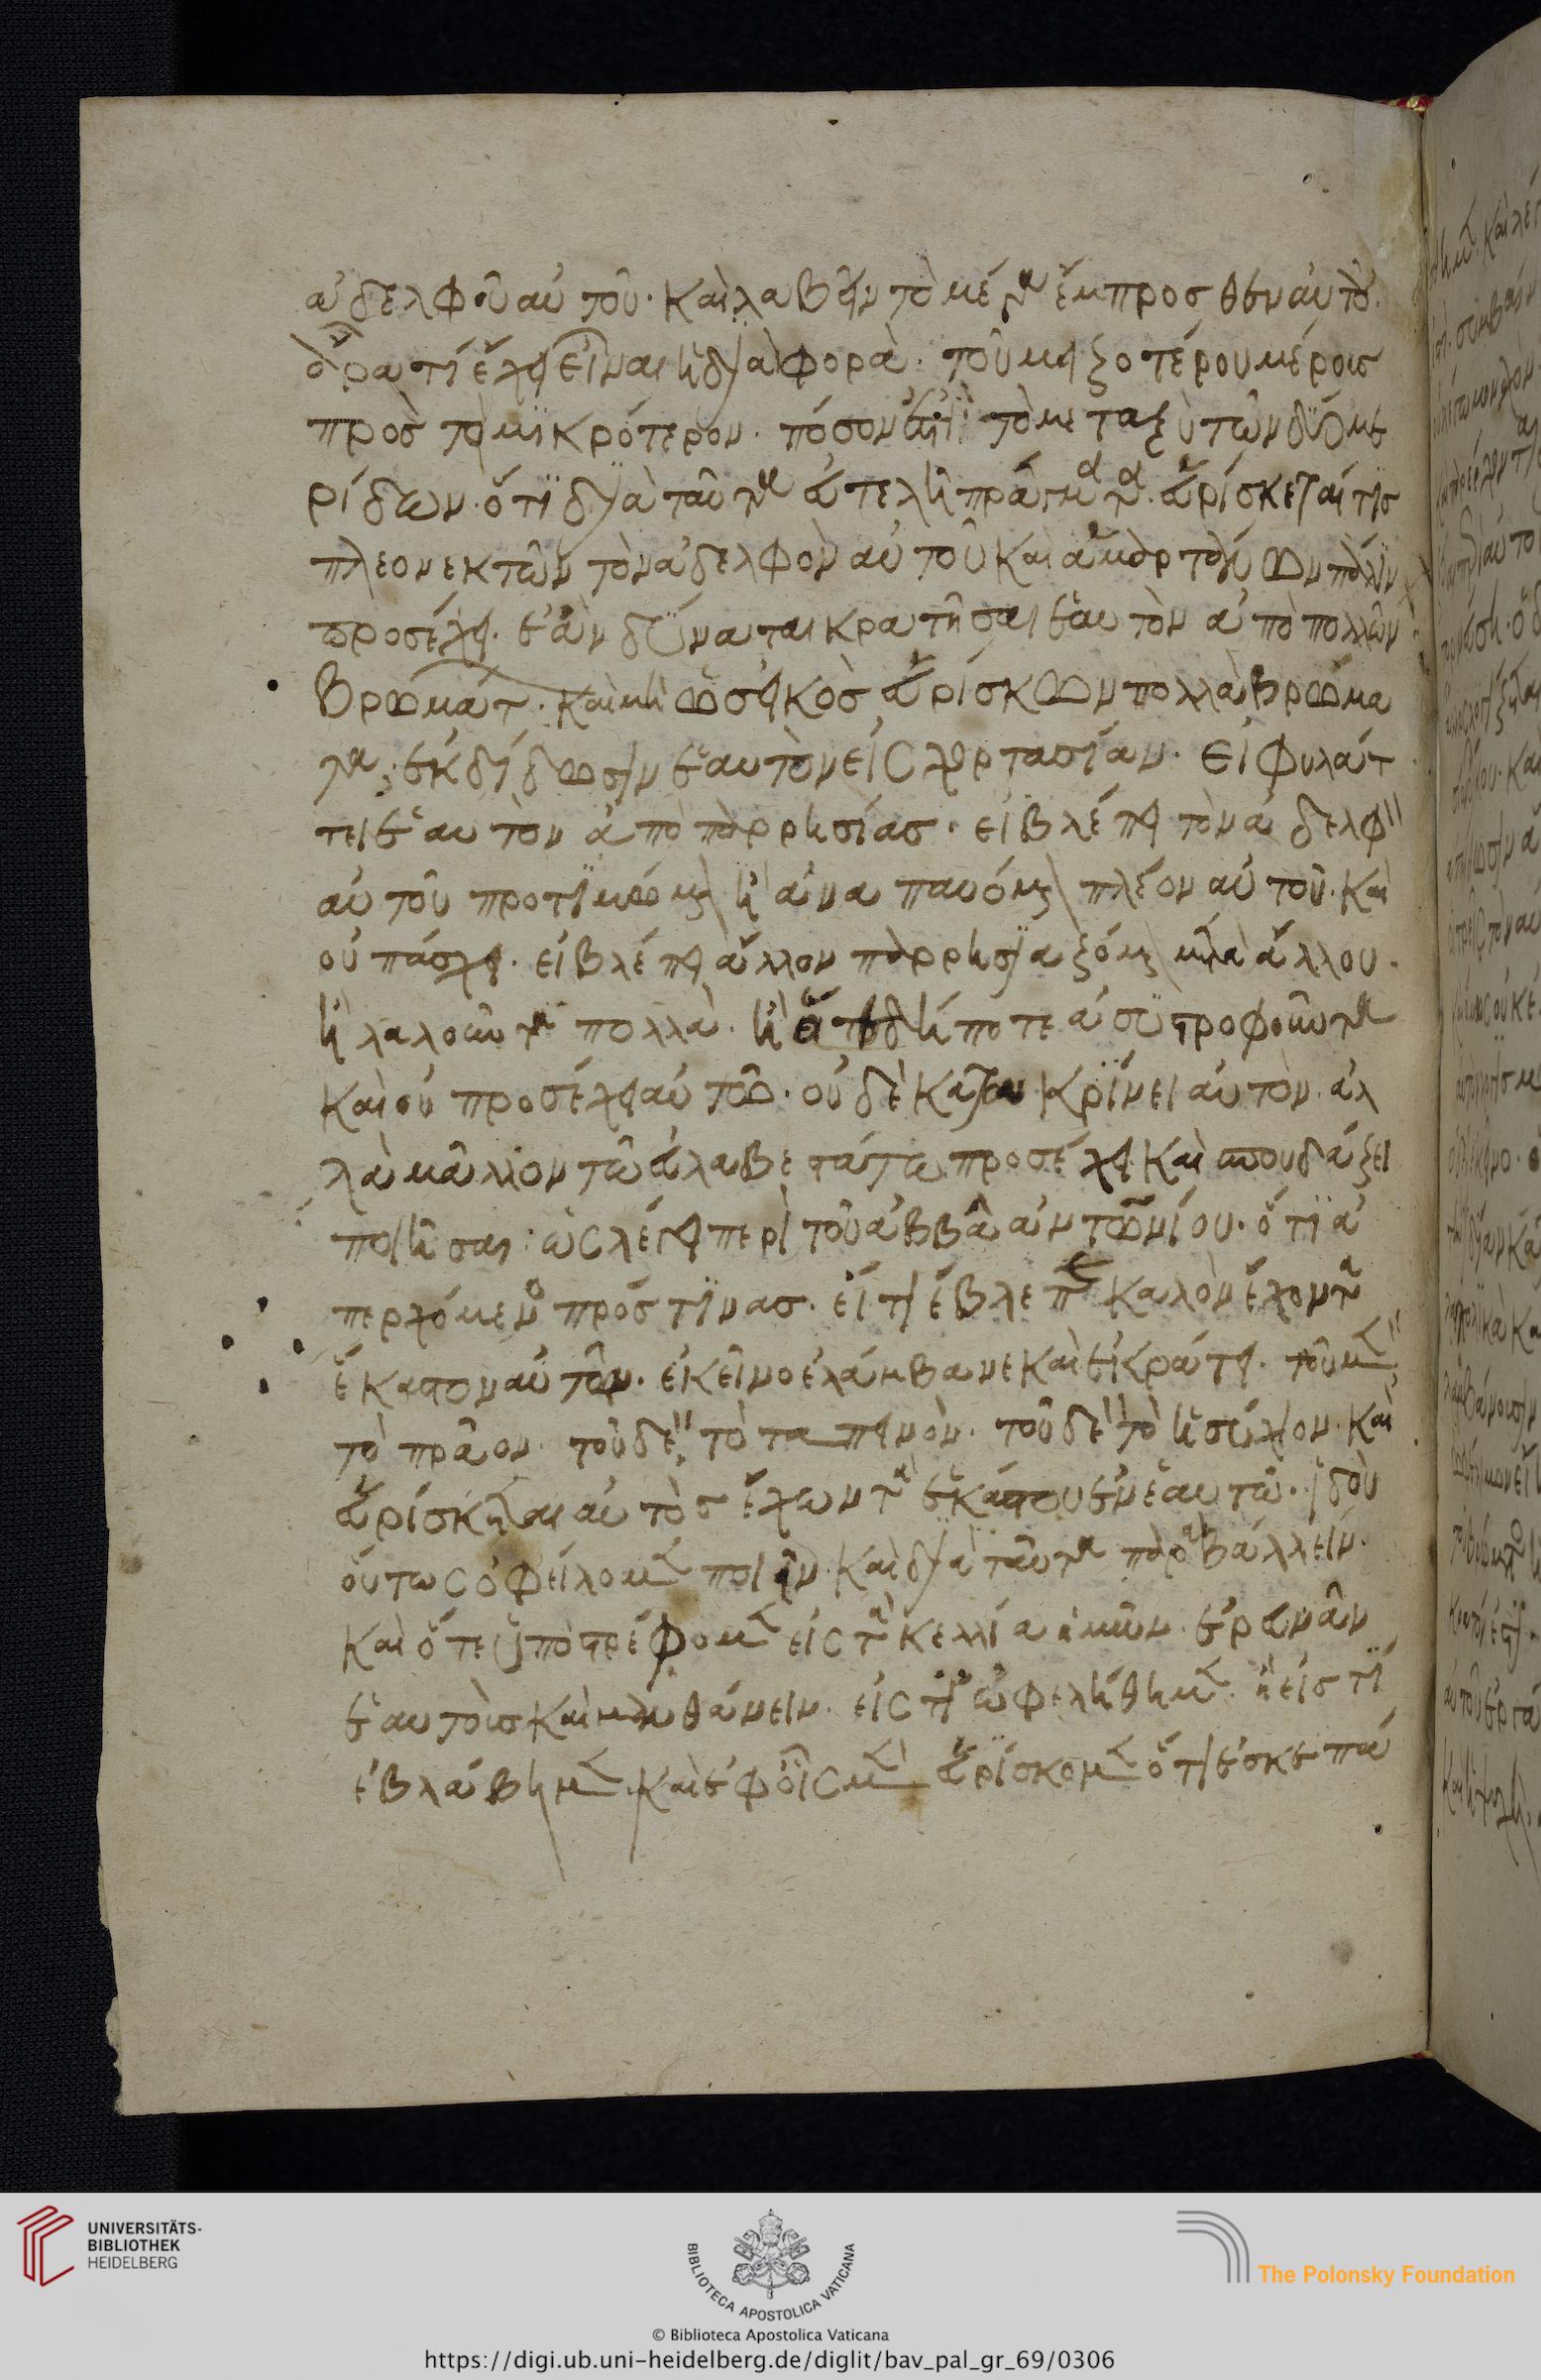 ἀδελφοῦ αὐτοῦ. καὶ λαβεῖν τὸ μέγα ἔμπροσθεν αὐτοῦ
ὅρα τί ἔχει εἶναι ἡ διαφορὰ. τοῦ μειζοτέρου μέρους
πρὸς τὸ μικρότερον. πόσον τὸ μεταξὺ τῶν δύο με
ρίδων. ὅτι διὰ ταῦτα ἀτελῆ πράγματα. εὑρίσκεται τις
πλεονεκτῶν τὸν ἀδελφὸν αὐτοῦ καὶ ἁμαρτάνων πάλιν
προσέχει. ἐὰν δύναται κρατῆσαι ἑαυτὸν ἀπὸ πολλῶν
βρωμάτ. καὶ μὴ ὡς εἰκὸς εὑρίσκων πολλὰ βρώμα
τα. ἐκδίδωσιν ἑαυτὸν εἰς χορτασίαν. εἰ φυλάτ
τει ἑαυτὸν ἀπὸ παρρησίας. εἰ βλέπει τὸν ἀδελφὸν
αὐτοῦ προτιμώμενον ἢ ἀναπαυόμενον πλέον αὐτοῦ. καὶ
οὐ πάσχει. εἰ βλέπει ἄλλον παρρησιαζόμενον μετὰ ἄλλου.
ἢ λαλοῦντα πολλὰ. ἢ δήποτε ἀσυστροφοῦντα
καὶ οὐ προσέχει αὐτῶ. οὐδὲ κατακρίνει αὐτὸν. ἀλ
λὰ μᾶλλον τῶ εὐλαβεστάτω προσέχει καὶ σπουδάζει
ποιῆσαι. ὡς λέγει περὶ τοῦ ἀββᾶ ἀντωνίου. ὅτι ἀ
περχόμενος πρός τινας. εἴ τι ἔβλεπε καλὸν ἔχοντα
ἕκαστον αὐτῶν. ἐκεῖνο ἐλάμβανε καὶ ἐκράτει. τοῦ μὲν
τὸ πρᾶον. τοῦ δὲ τὸ ταπεινὸν. τοῦ δὲ τὸ ἡσύχιον. καὶ
εὑρίσκεται αὐτὸς ἔχων τὰ ἑκάστου ἐν ἑαυτῶ. ἰδοὺ
οὕτως ὀφείλομεν ποιεῖν. καὶ διὰ ταῦτα παραβάλλειν.
καὶ ὅτε ὑποστρέφομεν εἰς τὰ κελλία ἡμῶν. ἐρευνᾶν
ἑαυτοὺς καὶ μανθάνειν. εἰς τί ὠφελήθημεν. ἢ εἰς τί
ἐβλάβημεν. καὶ ἐφ οἷς μὲν εὑρίσκομεν ὅτι ἐσκεπά
UNIVERSITÄTS-
BIBLIOTHEK
HEIDELBERG
BIBLIOTECA APOSTOLICA VATICANA
The Polonsky Foundation
© Biblioteca Apostolica Vaticana
https://digi.ub.uni-heidelberg.de/diglit/bav_pal_gr_69/0306